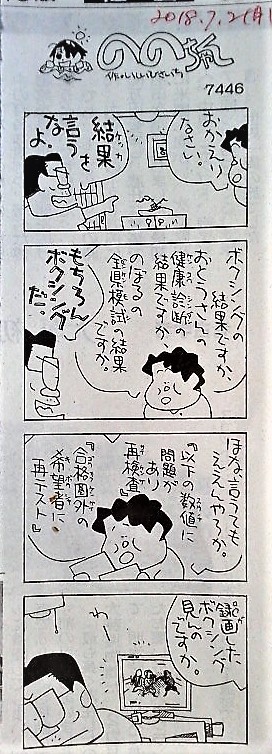 2018.7.2(月)
ののちゃん
作・いしいひさいち
7446
おかえり
なさい。
結果
ケッカ
言うな
よ。
ボクシングの
結果ですか、
おとうさんの
健康診断の
結果ですか、
のぼるの
全県模試の結果
ですか。
もちろん
ボクシング
だ。
ほな、言うても
ええんやろか。
『以下の数値に
問題が
あり
再検査』
『合格圏外の
希望者に
再テスト』
録画した
ボクシング
見んの
ですか。
わー